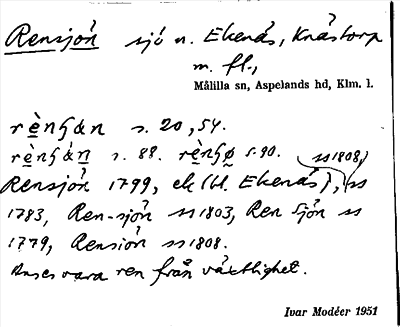 Rensjön sjö n. Ekenäs, Knåstorp
m. fl.,
Målilla sn, Aspelands hd, Klm. l.
s. 20, 54.
s. 88. s. 90. ss 1808,
Rensjön 1799, ek (bl. Ekenäs), ss
1783, Ren-sjön ss 1803, Ren Sjön ss
1779, Rensiön ss 1808.
Anses vara ren från växtlighet.
Ivar Modéer 1951